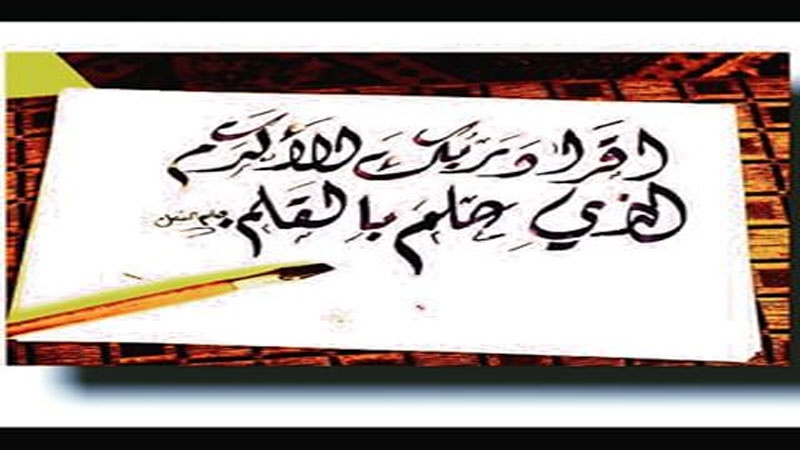 اقرأ وربك الأكرم
الذي علم بالقلم